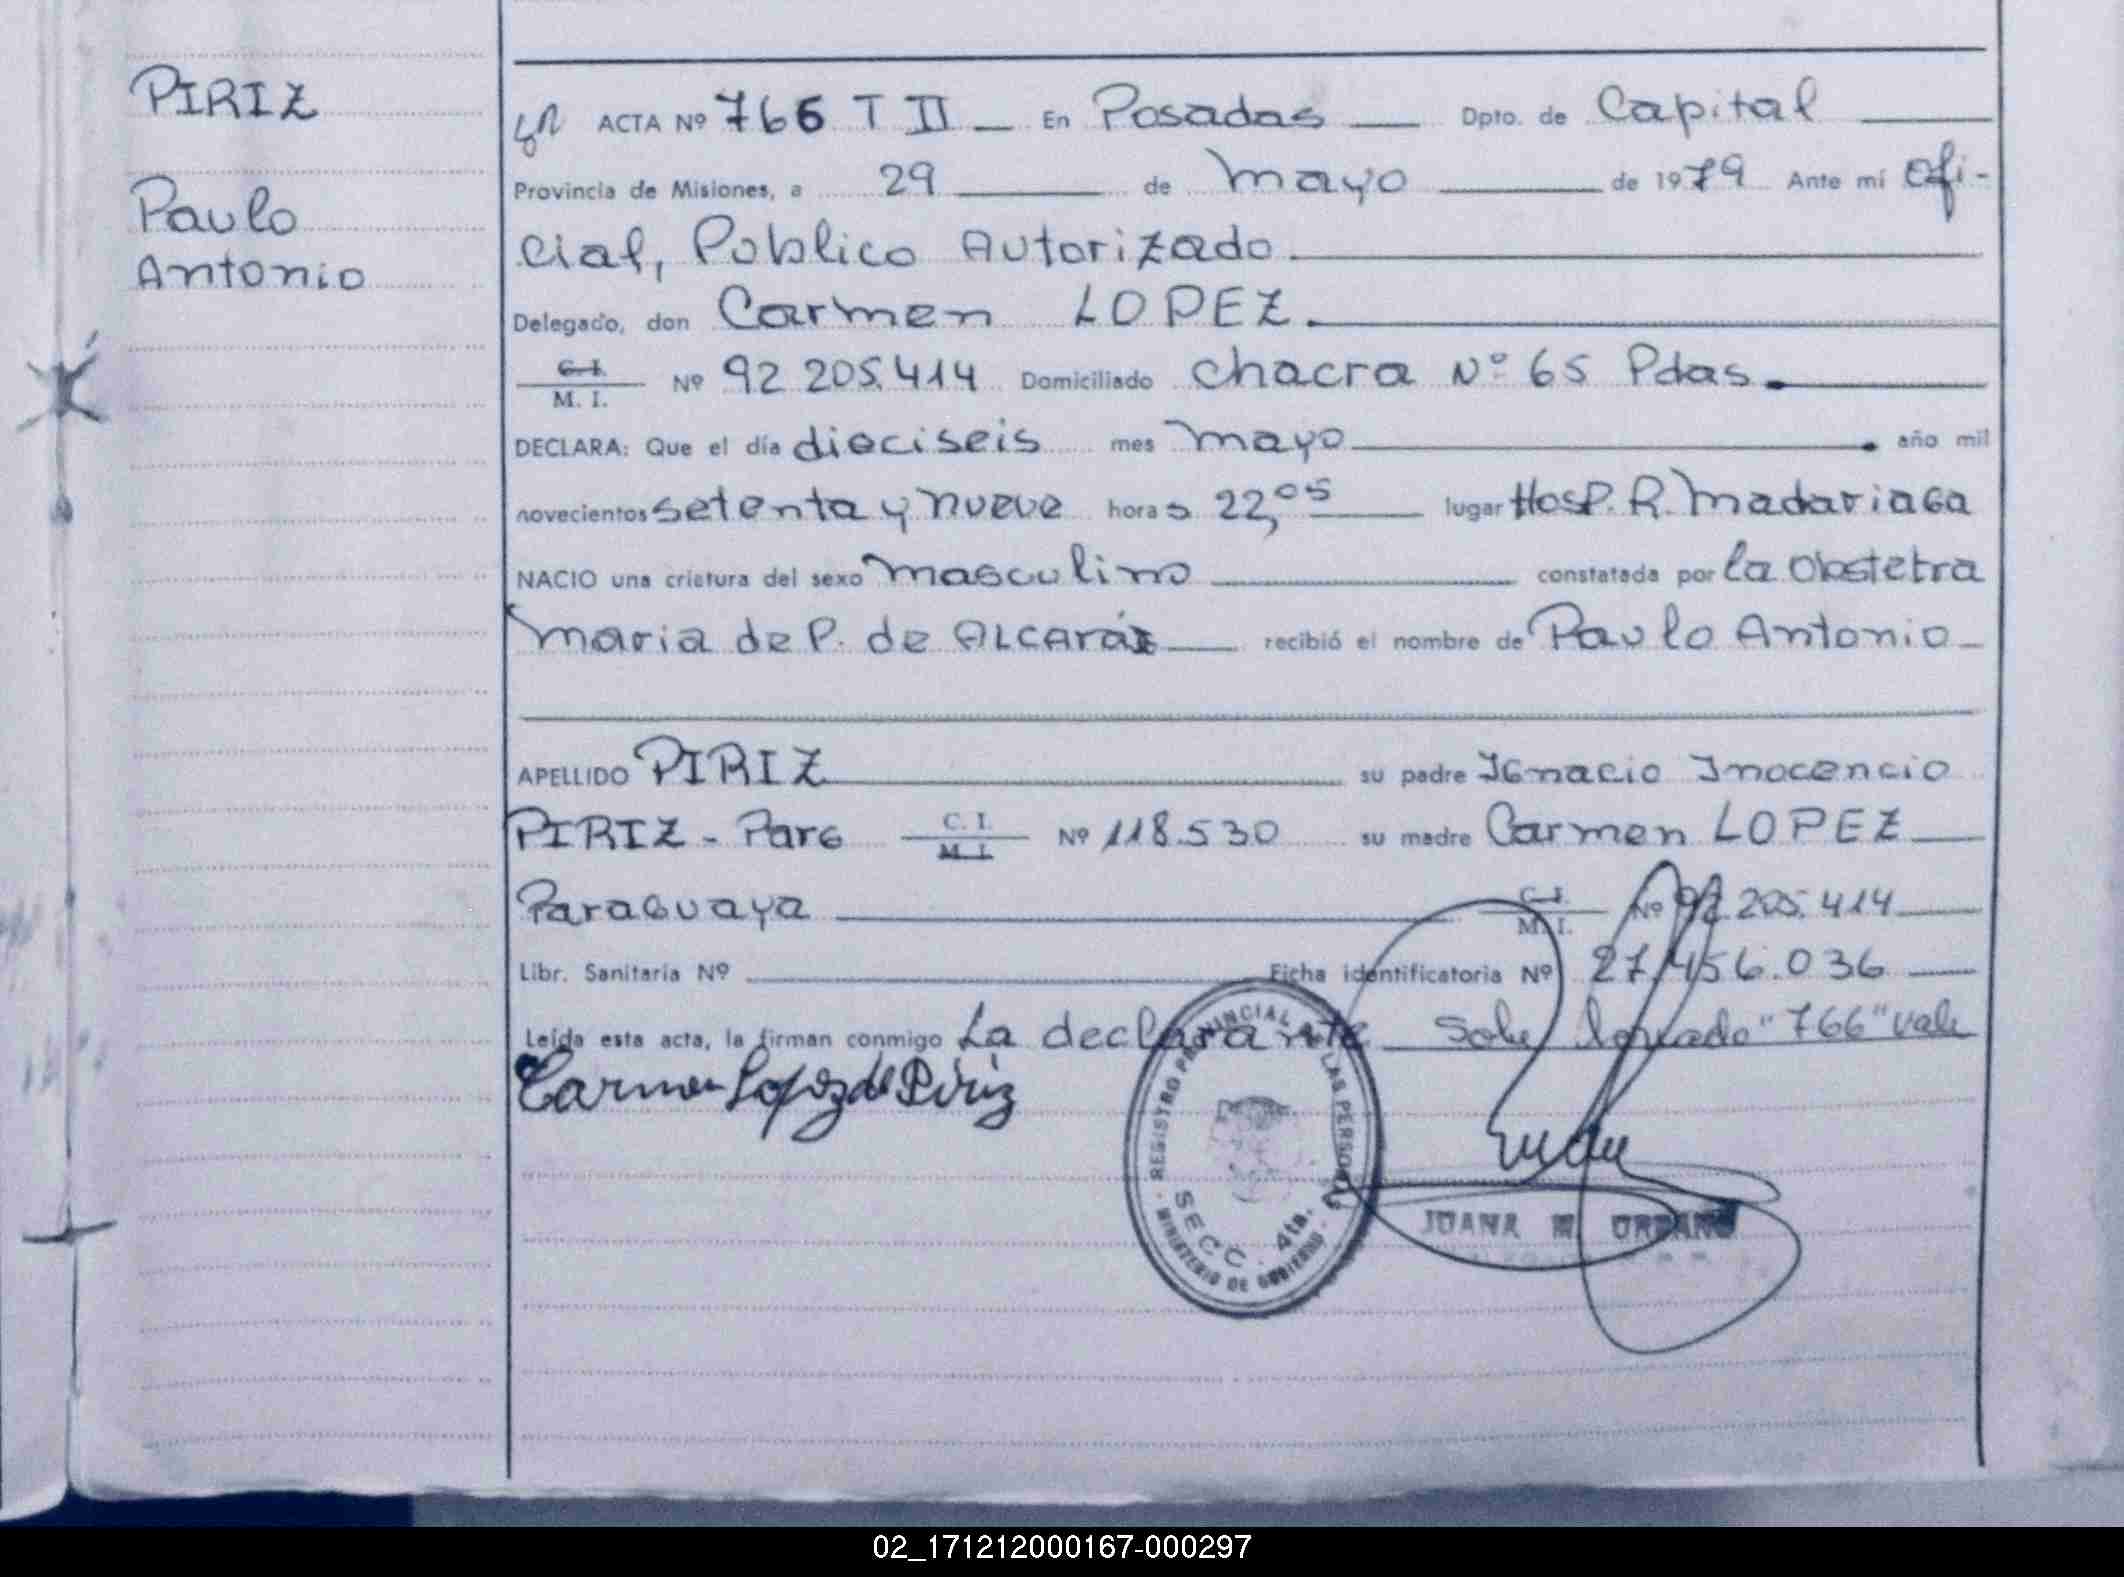 PIRIZ
Paulo
Antonio
ACTA Nº 766 T II En Posadas Dpto. de Capital
Provincia de Misiones, a 29 de Mayo de 1979 Ante mí Ofi-
cial, Público Autorizado
Delegado, don Carmen LOPEZ
C.I. M. I. Nº 92 205.414 Domiciliado Chacra Nº 65 Pdas.
DECLARA: Que el día dieciseis mes Mayo año mil
novecientos setenta y nueve horas 22,05 lugar Hosp. R. Madariaga
NACIO una criatura del sexo Masculino constatada por la Obstetra
Maria de P. de ALCARáz recibió el nombre de Paulo Antonio
APELLIDO PIRIZ su padre Ignacio Inocencio
PIRIZ - Parg C. I. M. I. Nº 118.530 su madre Carmen LOPEZ
Paraguaya C.I. M. I. Nº 92 205.414
Libr. Sanitaria Nº Ficha identificatoria Nº 27.456.036
Leída esta acta, la firman conmigo La declarante Sobre borrado "766" vale
Carmen Lopez de Piriz
REGISTRO PROVINCIAL DE LAS PERSONAS
SECC. 4ta.
MINISTERIO DE GOBIERNO
JUANA M URBANO
02_171212000167-000297